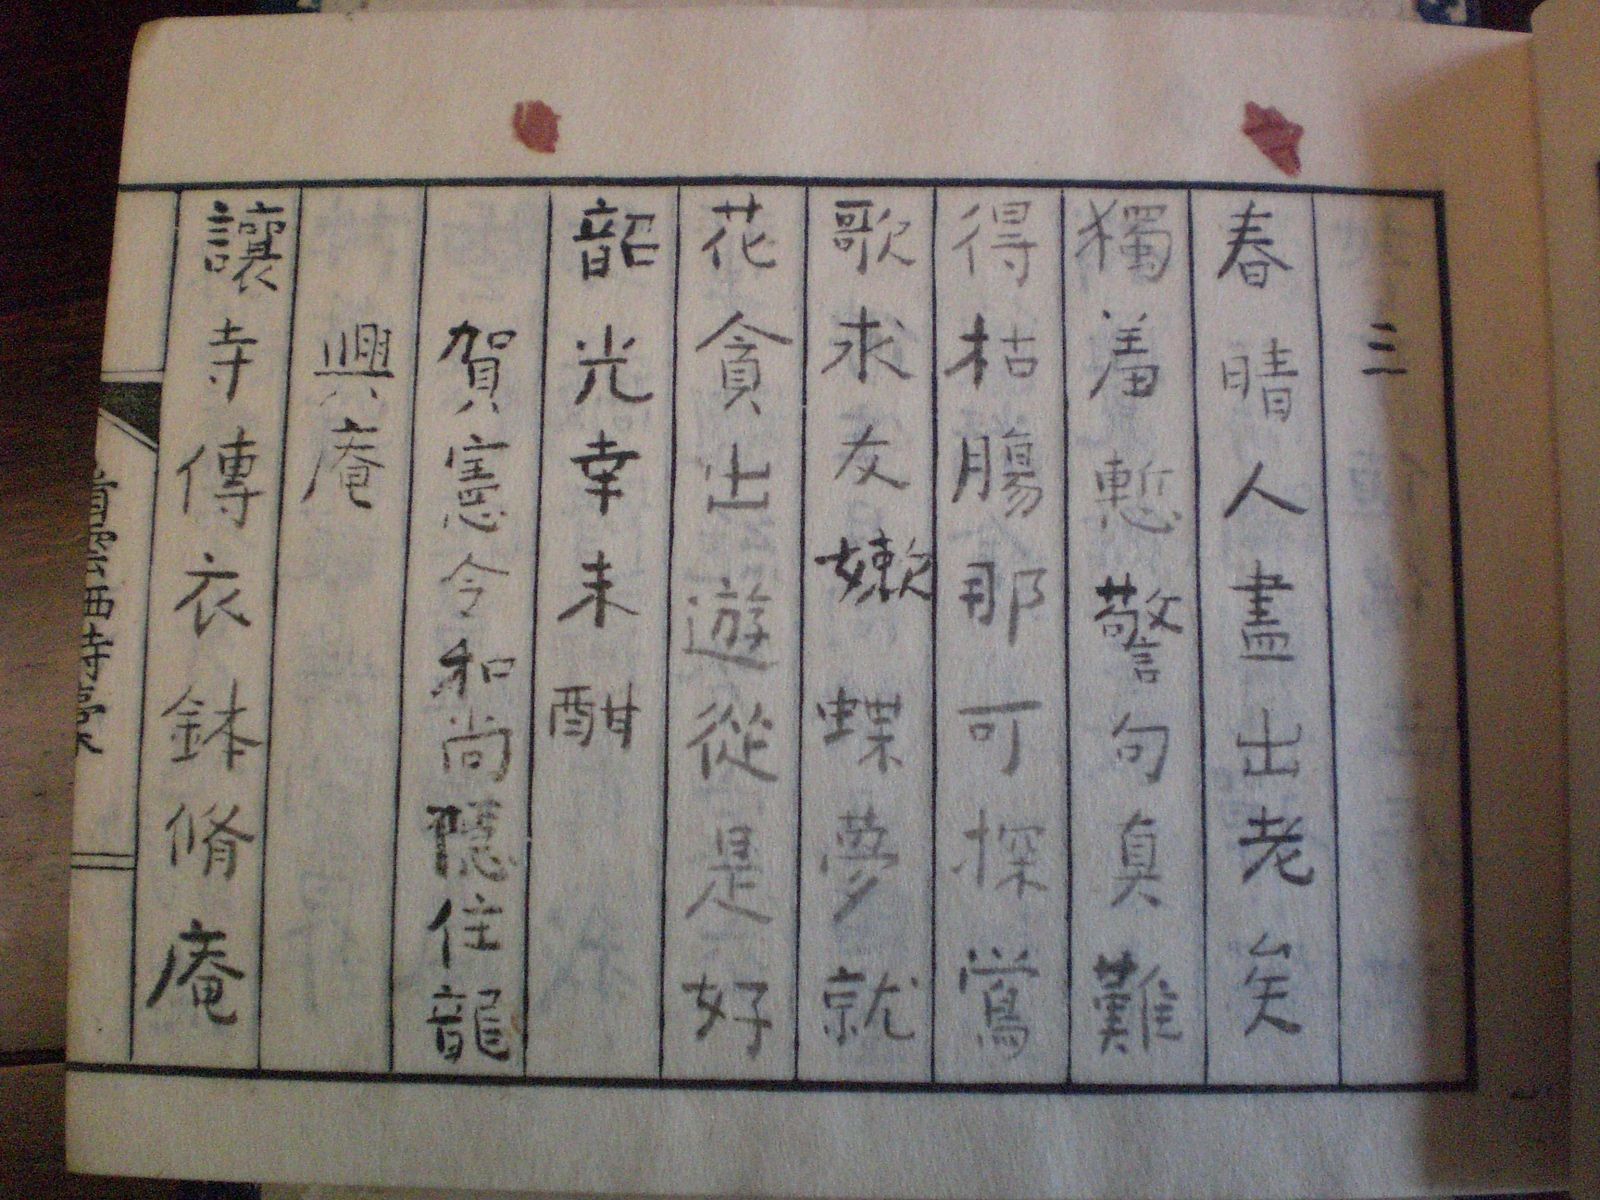 三
春晴人盡出老矣
獨羞慙警句真難
得枯腸那可探鶯
歌求友嫩蝶夢就
花貪出遊從是好
韶光幸未酣
賀憲令和尚隱住龍
興庵
讓寺傳衣鉢脩庵